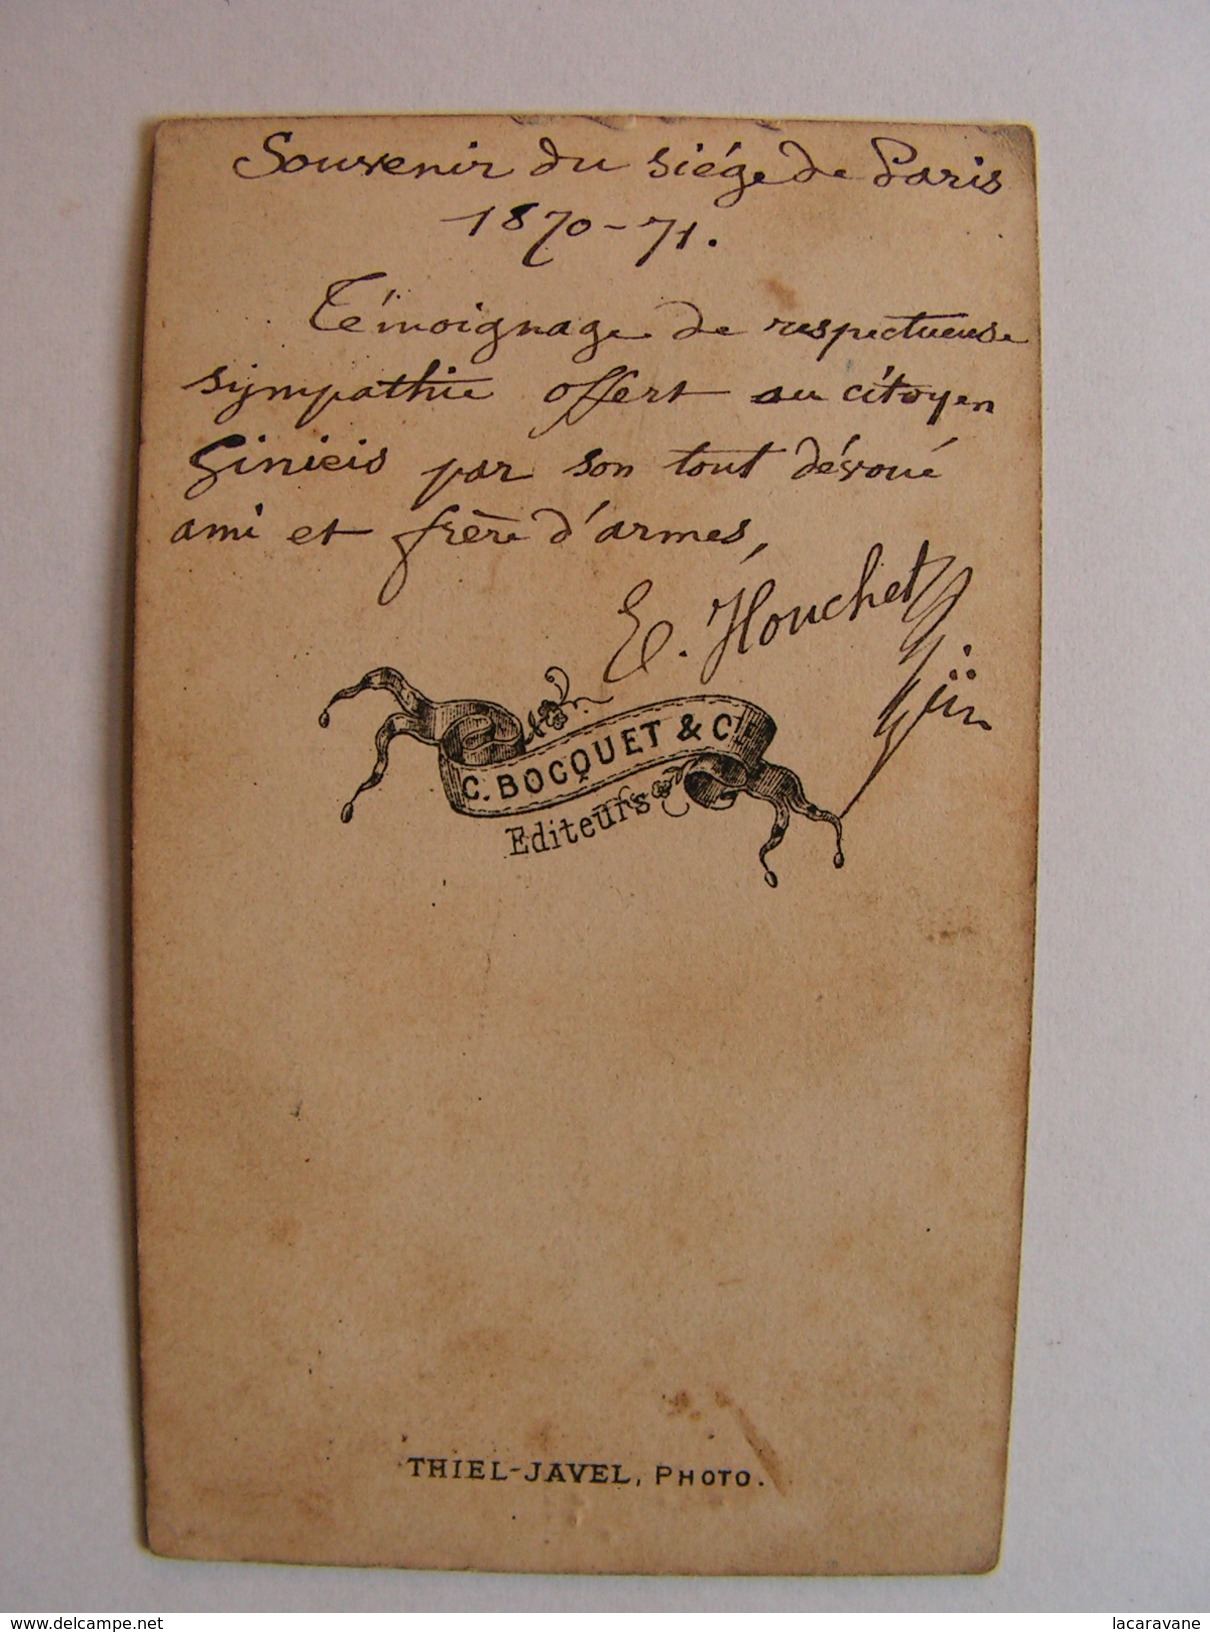 Souvenir du siége de Paris
1870-71.
Témoignage de respectueuse
sympathie offert au citoyen
Ginieis par son tout dévoué
ami et frère d'armes,
E. Houchet
C. BOCQUET & Cie
Editeurs
THIEL-JAVEL, PHOTO.
lacaravane
www.delcampe.net